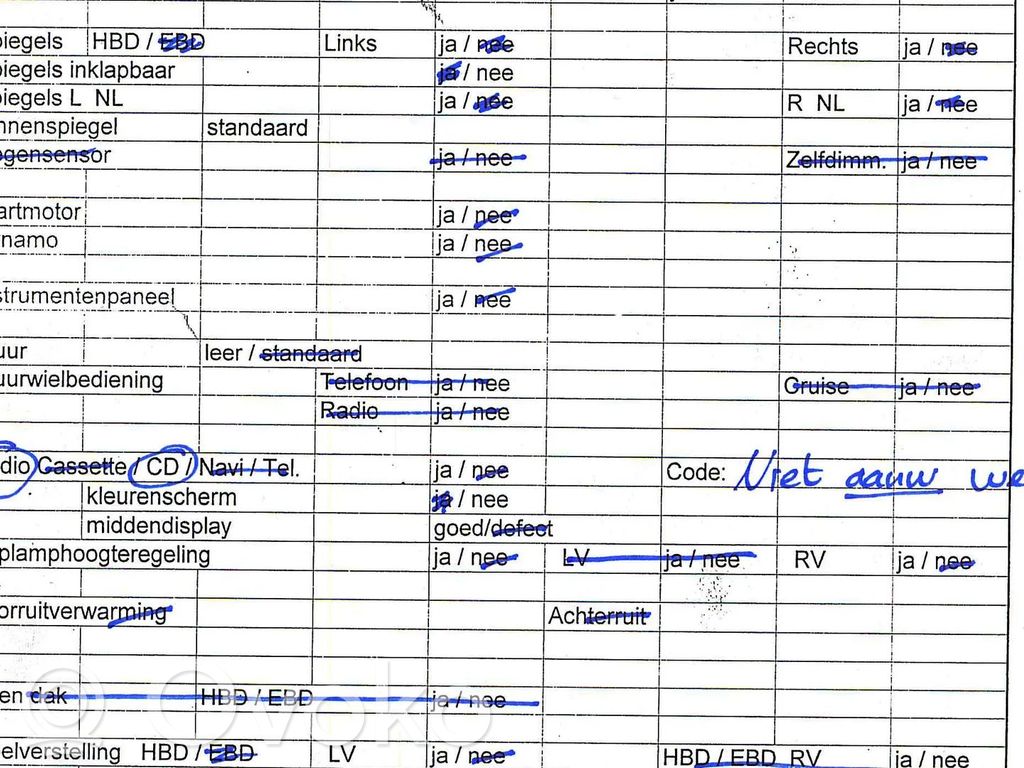 piegels HBD / EBD Links ja / nee Rechts ja / nee
piegels inklapbaar ja / nee
piegels L NL ja / nee R NL ja / nee
nnenspiegel standaard
egensensor ja / nee Zelfdimm. ja / nee
artmotor ja / nee
namo ja / nee
strumentenpaneel ja / nee
uur leer / standaard
uurwielbediening Telefoon ja / nee Cruise ja / nee
Radio ja / nee
dio Cassette / CD / Navi / Tel. ja / nee Code: Niet aanw we
kleurenscherm ja / nee
middendisplay goed/defect
plamphoogteregeling ja / nee LV ja / nee RV ja / nee
orruitverwarming Achterruit
en dak HBD / EBD ja / nee
© Ovoko
elverstelling HBD / EBD LV ja / nee HBD / EBD RV ja / nee